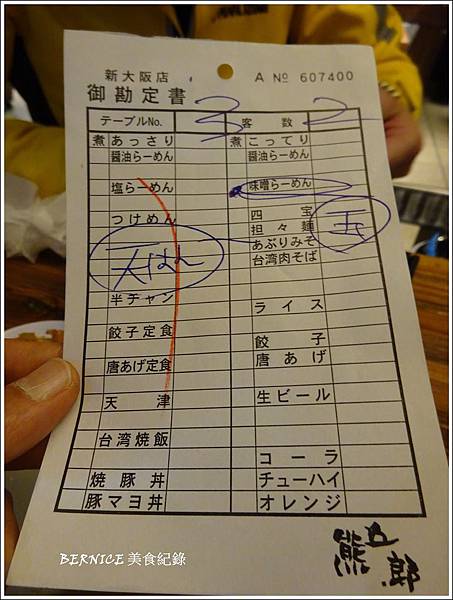 新大阪店
A Nº 607400
御勘定書
テーブルNo. 3 客数 2
煮あっさり 煮こってり
醤油らーめん 醤油らーめん
塩らーめん 味噌らーめん
つけめん 四宝
担々麺
あぶりみそ
台湾肉そば
半チャン ライス
餃子定食 餃子
唐あげ定食 唐あげ
天津 生ビール
台湾焼飯
コーラ
焼豚丼 チューハイ
豚マヨ丼 オレンジ
熊五郎
BERNICE 美食紀錄